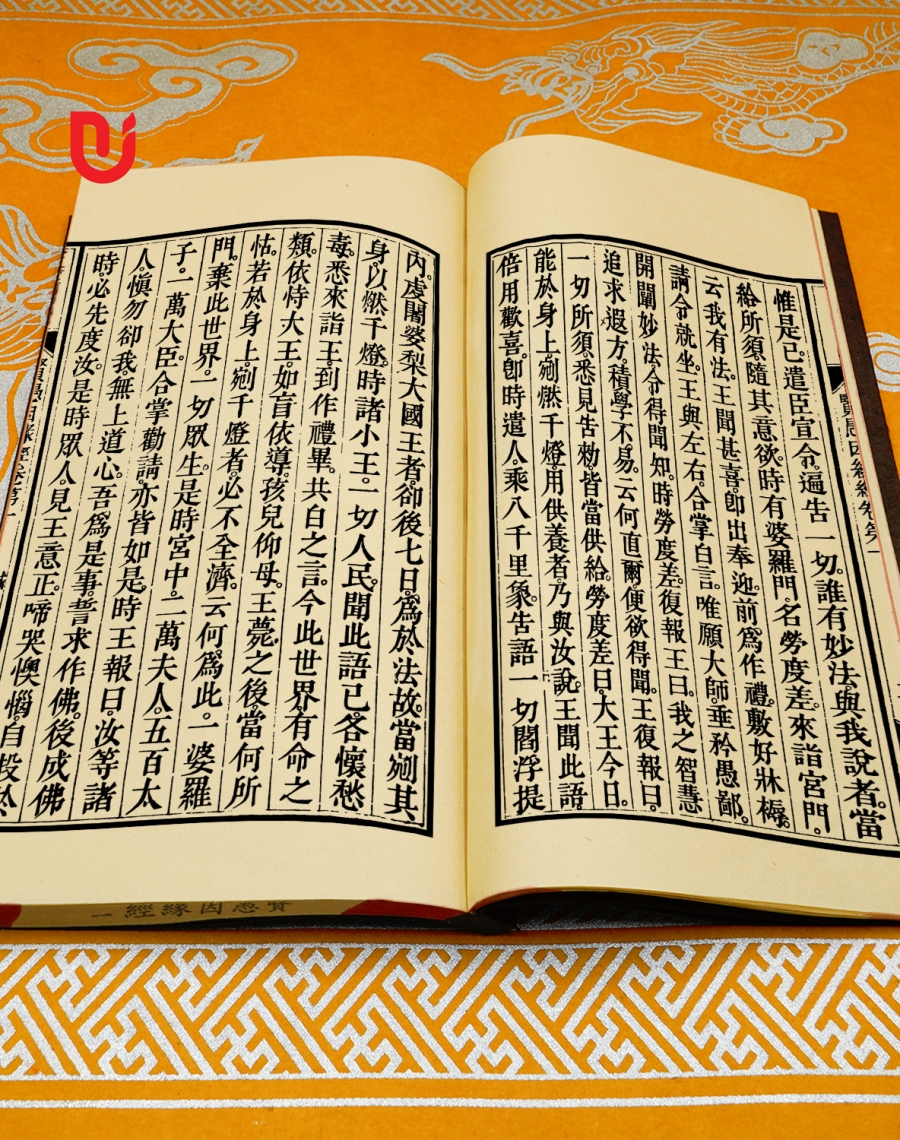 惟是已。遣臣宣令。遍告一切。誰有妙法。與我說者。當
給所須。隨其意欲。時有婆羅門。名勞度差。來詣宮門。
云我有法。王聞甚喜。即出奉迎。前為作禮。敷好牀榻。
請令就坐。王與左右。合掌白言。唯願大師。垂矜愚鄙。
開闡妙法。令得聞知。時勞度差。復報王曰。我之智慧
追求遐方。積學不易。云何直爾。便欲得聞。王復報曰。
一切所須。悉見告勑。皆當供給。勞度差曰。大王今日。
能於身上。剜燃千燈。用供養者。乃與汝說。王聞此語。
倍用歡喜。即時遣人。乘八千里象。告語一切閻浮提
內。虔闍婆梨大國王者。卻後七日。為於法故。當剜其
身。以燃千燈。時諸小王。一切人民。聞此語已。各懷愁
毒。悉來詣王。到作禮畢。共白之言。今此世界。有命之
類。依恃大王。如盲依導。孩兒仰母。王薨之後。當何所
怙。若於身上。剜千燈者。必不全濟。云何為此。一婆羅
門。棄此世界。一切眾生。是時宮中。二萬夫人。五百太
子。一萬大臣。合掌勸請。亦皆如是。時王報曰。汝等諸
人。慎勿卻我無上道心。吾為是事。誓求作佛。後成佛
時。必先度汝。是時眾人。見王意正。啼哭懊惱。自投於
賢愚因緣經卷第一
賢愚因緣經 一